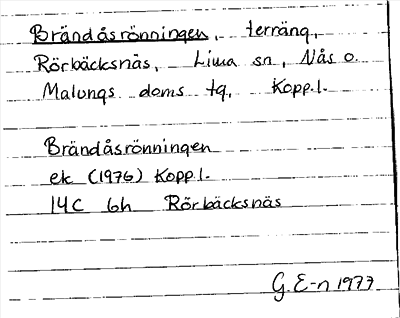 Brändåsrönningen, terräng,
Rörbäcksnäs, Lima sn, Nås o.
Malungs doms tg, Kopp.l.
Brändåsrönningen
ek (1976) Kopp.l.
14C 6h Rörbäcksnäs
G. E-n 1977